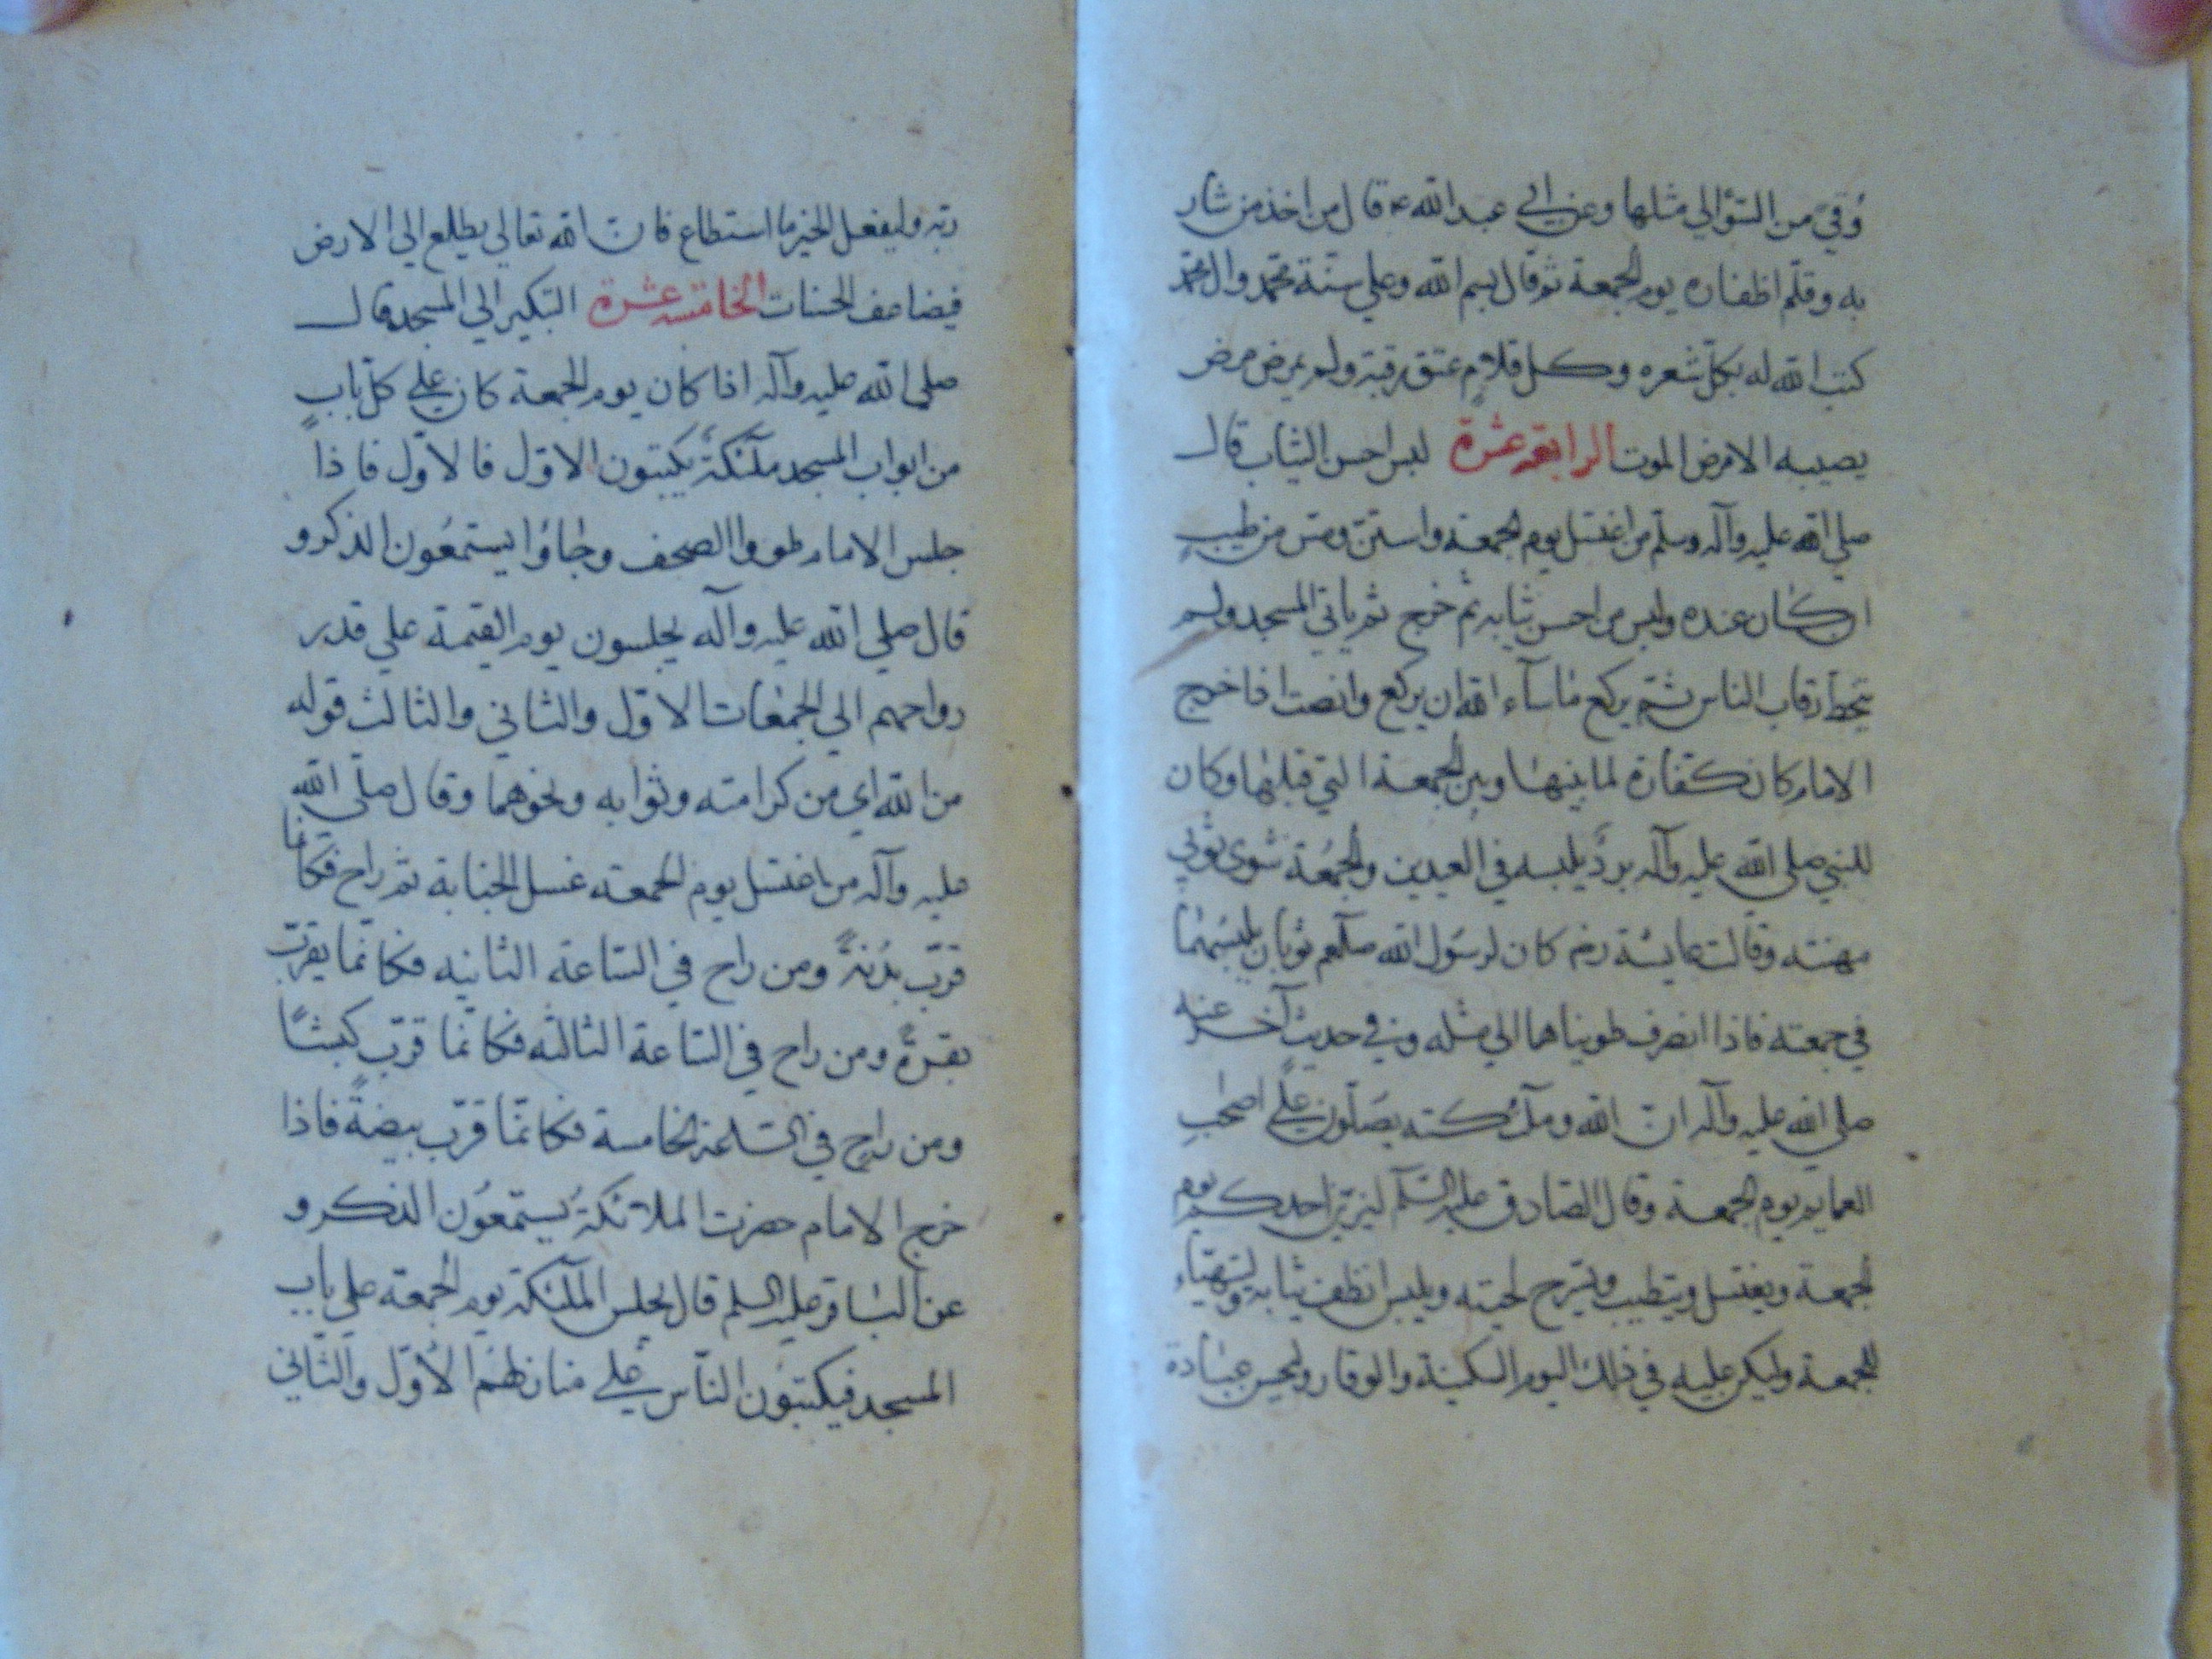 وُقِيَ من السّؤالي مثلها وعن ابي عبد الله ع قال من اخذ من شار
به وقلّم اظفاره يوم الجمعة ثم قال بسم الله وعلي سنّة محمّد وال محمّد
كتب الله له بكلّ شعره وكل قلام عتق رقبة ولم يمرض مرض
يصيبه الا مرض الموت الرابعة عشرة لبس احسن الثياب قال
صلي الله عليه وآله وسلّم من اغتسل يوم الجمعة واستنّ ومسّ من طيبٍ
ان كان عنده ولبس من احسن ثيابه ثم خرج ثم ياتي المسجد ولم
يتخط رقاب الناس ثم يركع ما شآء الله ان يركع وانصت اذا خرج
الامام كان كفّارة لما بينها وبين الجمعة التي قبلها وكان
للنبي صلي الله عليه وآله بردٌ يلبسه في العيدين والجمُعة سوي ثوبي
مهنته وقالت عايشة رض كان لرسُول الله صلعم ثوبان يلبسهما
في جمعته فاذا انصرف طويناهما الي مثله وفي حديث آخر عنه
صلي الله عليه وآله انّ الله وملآئكته يصَلّون علي اصحٰبِ
العمايم يوم الجمعة وقال الصّادق عليه السّلم ليتزيّن احدكم يوم
الجمعة ويغتسل ويتطيب ويسرّح لحيته ويلبس انظف ثيابه وليتهيّاء
للجمعة وليكن عليه في ذلك اليوم السكينة والوقار وليحسن عبادة
ربّه وليفعل الخير ما استطاع فانّ الله تعالي يطلع الي الارض
فيضاعف الحسنات الخامسة عشرة التبكير الي المسجد قال
صلي الله عليه وآله اذا كان يوم الجمعة كان علي كلّ بابٍ
من ابواب المسجد ملآئكةً يكتبون الاوّل فالاوّل فاذا
جلس الامام طووا الصحف وجاؤا يستمعُون الذكر و
قال صلي الله عليه وآله يجلسون يوم القيمة علي قدر
رواحهم الي الجمعٰات الاوّل والثاني والثالث قوله
من الله اي من كرامته وثوابه ونحوهما وقال صلّي الله
عليه وآله من اغتسل يوم الجمعة غسل الجنابة ثم راح فكانّما
قرّب بدُنةً ومن راح في السّاعة الثانيه فكانّما يقرّب
بقرةً ومن راح في السّاعة الثالثه فكانّما قرّب كبشًا
ومن راح في السّاعة الخامسة فكانّما قرّب بيضةً فاذا
خرج الامام حضرت الملائكةُ يستمعُون الذكر و
عن البٰاقر عليه السلم قال يجلس الملآئكة يوم الجمعة علي باب
المسجد فيكتبُون النّاس علي منازلهم الاوّل والثّاني